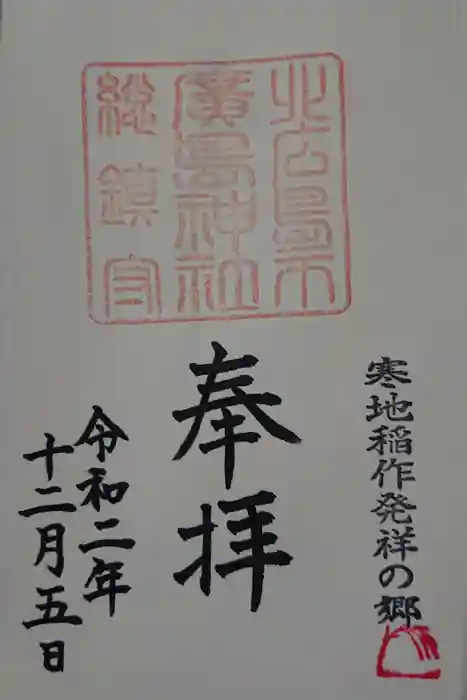 北広島市
廣島神社
総鎮守
寒地稲作発祥の郷
奉拝
令和二年
十二月五日